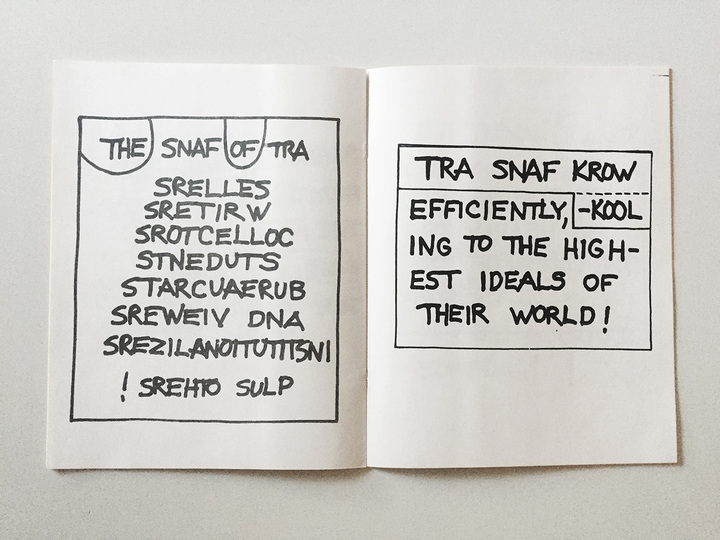 THE SNAF OF TRA
SRELLES
SRETIRW
SROTCELLOC
STNEDUTS
STARCUAERUB
SREWEIV DNA
SREZILANOITUTITSNI
! SREHTO SULP
TRA SNAF KROW
EFFICIENTLY, -KOOL
ING TO THE HIGH-
EST IDEALS OF
THEIR WORLD!